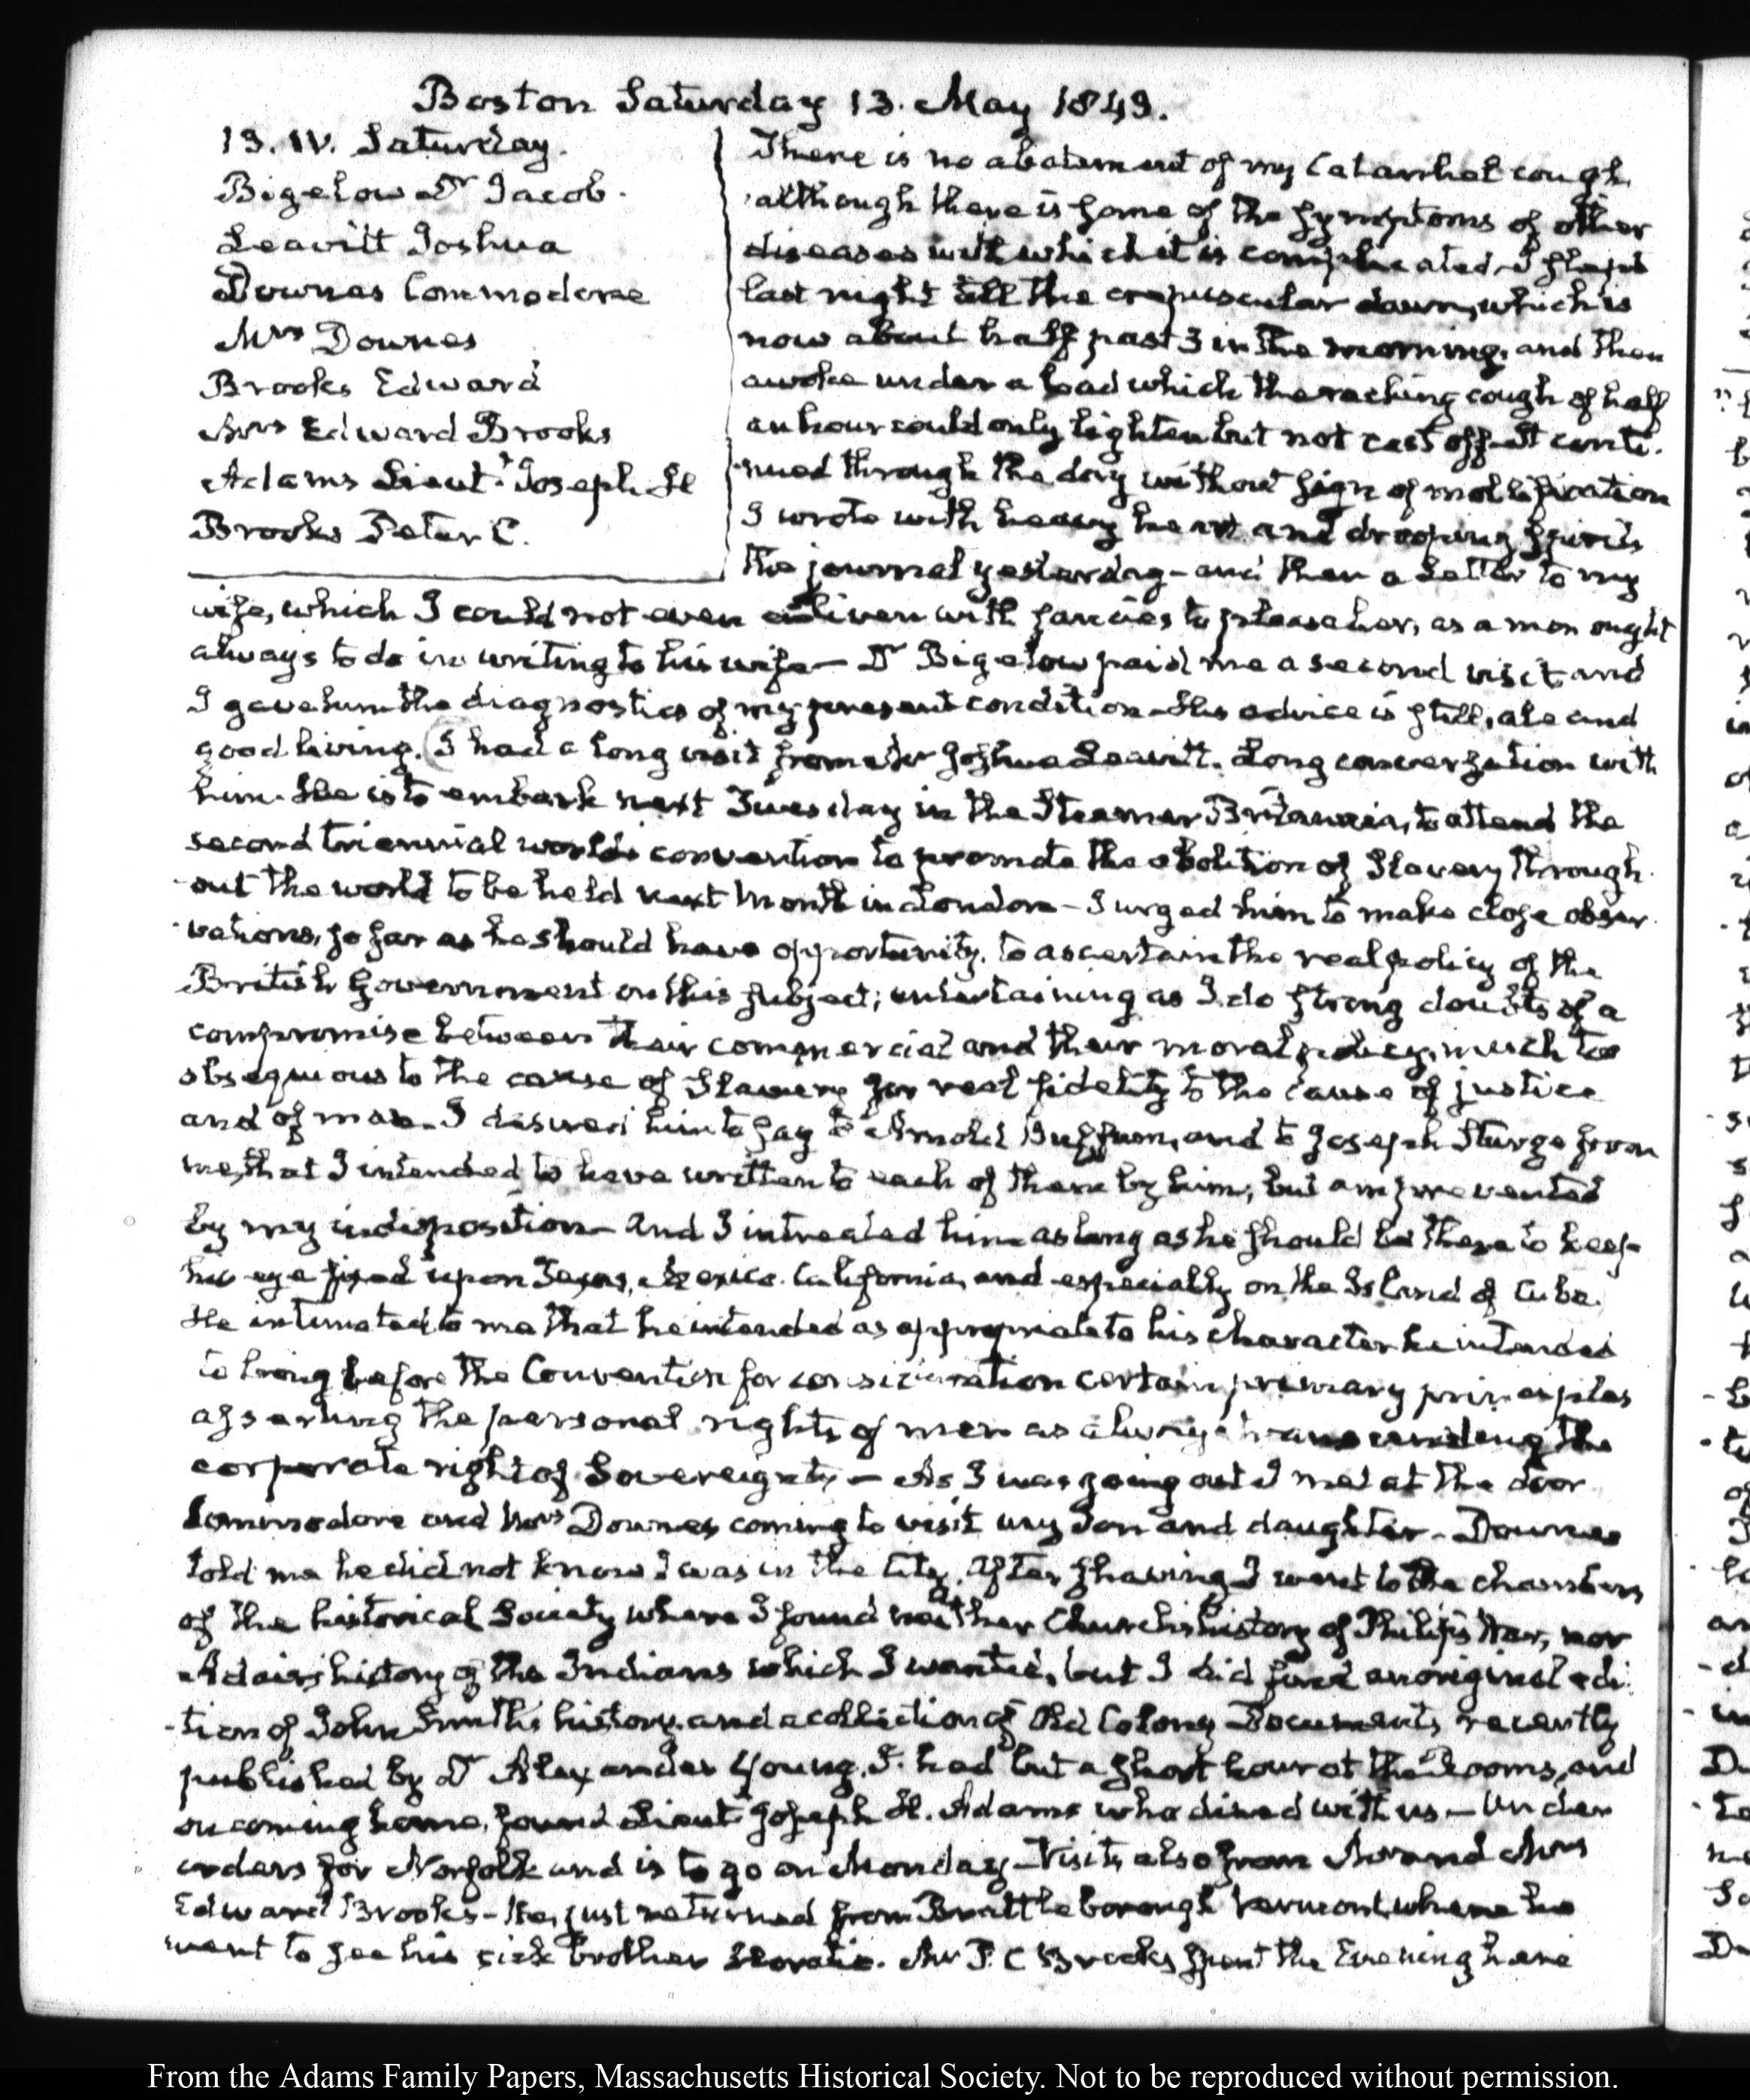 Boston Saturday 13. May 1843.
13. IV. Saturday.
Bigelow Dr Jacob.
Leavitt Joshua
Downes Commodore
Mrs Downes
Brooks Edward
Mrs Edward Brooks
Adams Lieut. Joseph H
Brooks Peter C.
There is no abatement of my Catarrhal cough
although there is some of the symptoms of other
diseases with which it is complicated. I slept
last night till the crepuscular dawn, which is
now about half past 3 in the morning, and then
awoke under a load which the racking cough of half
an hour could only lighten but not cast off. It conti-
-nued through the day without sign of mollification
I wrote with heavy heart and drooping spirits
the journal yesterday - and then a Letter to my
wife, which I could not even enliven with fancies to please her, as a man ought
always to do in writing to his wife - Dr Bigelow paid me a second visit and
I gave him the diagnostics of my present condition - His advice is still, ale and
good living. (I had a long visit from Mr Joshua Leavitt. Long conversation with
him. He is to embark next Tuesday in the Steamer Britannia, to attend the
second triennial world's convention to promote the abolition of Slavery through-
-out the world to be held next Month in London - I urged him to make close obser-
-vations, so far as he should have opportunity, to ascertain the real policy of the
British Government on this subject; entertaining as I do strong doubts of a
compromise between their commercial and their moral policy, much too
obsequious to the cause of Slavery for real fidelity to the cause of justice
and of man. I desired him to say to Arnold Buffum, and to Joseph Sturge from
me, that I intended to have written to each of them by him, but am prevented
by my indisposition - and I intreated him as long as he should be there to keep
his eye fixed upon Texas, Mexico. California, and especially on the Island of Cuba.
He intimated to me that he intended as appropriate to his character he intended
to bring before the Convention for consideration certain primary principles
asserting the personal rights of men as always transcending the
corporate right of Sovereignty - As I was going out I met at the door
Commodore and Mrs Downes coming to visit my Son and daughter - Downes
told me he did not know I was in the City. After shaving I went to the chambers
of the historical Society where I found neither Church's history of Philip's War, nor
Adair's history of the Indians which I wanted, but I did find an original edi-
-tion of John Smith's history, and a collection of Old Colony Documents, recently
published by Dr Alexander Young. I had but a short hour at the Rooms, and
on coming home, found Lieut Joseph H. Adams who dined with us - Under
orders for Norfolk and is to go on Monday - Visits also from Mr and Mrs
Edward Brooks - He, just returned from Brattleborough Vermont, where he
went to see his sick brother Horatio. Mr P. C Brooks spent the Evening here
From the Adams Family Papers, Massachusetts Historical Society. Not to be reproduced without permission.